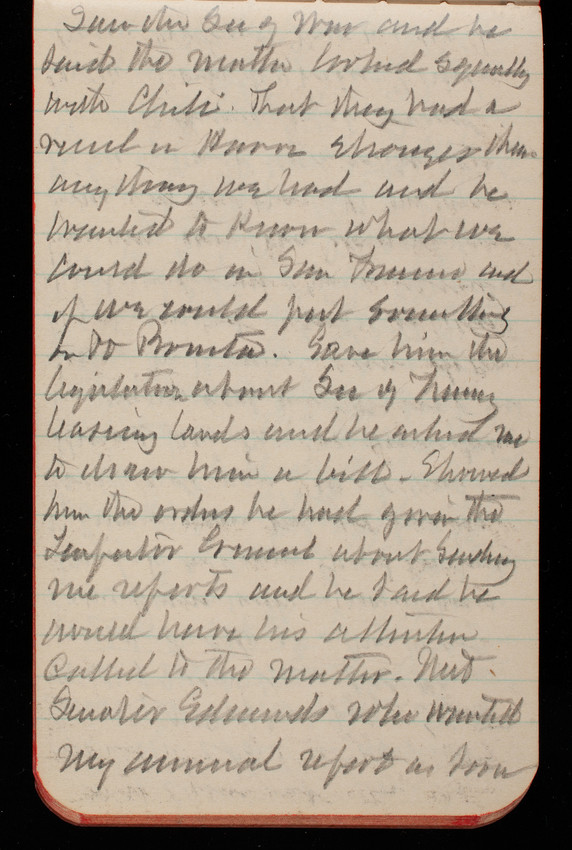 Saw the Sec of War and he
said the matter looked squally
with Chili. That they had a
vessel in Harbor stronger than
any thing we had and he
wanted to know what we
could do in San Franco and
if we could put something
on Pt Bonita. Gave him the
legislation about Sec of Treasy
leasing lands and he asked me
to draw him a bill. Showed
him the orders he had given the
Inspector General about sending
me reports and he said he
would have his attention
called to the matter. Met
Senator Edmunds who wanted
my annual report as soon